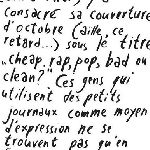 consacre sa couverture
d'octobre (aille, ce
retard...) sous le titre
„cheap, rap, pops, bad ou
clean?" Ces gens qui
utilisent des petits
journaux comme moyen
d'expression ne se
trouvent pas qu'en